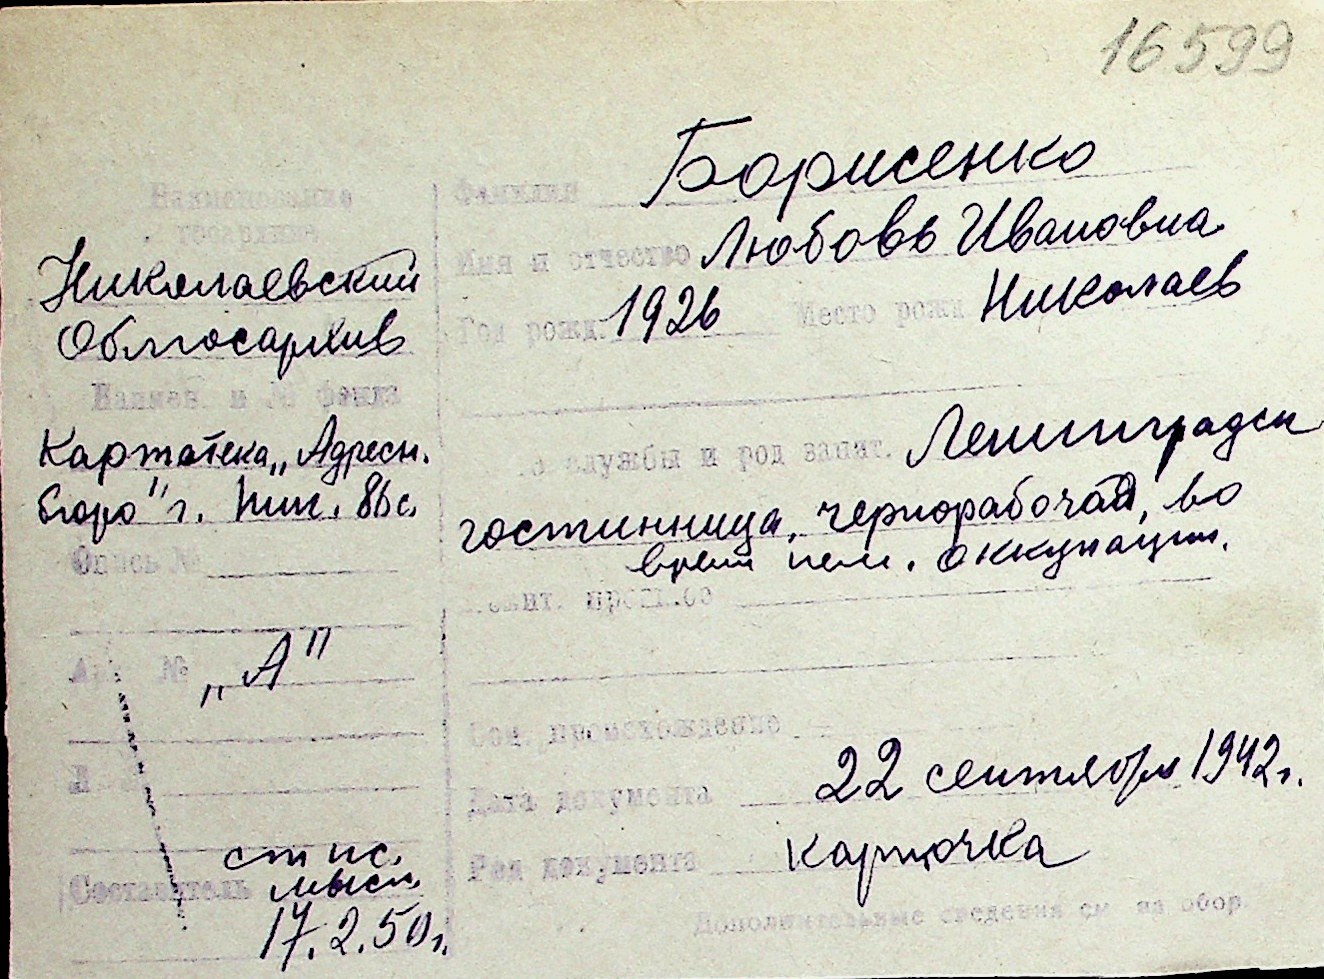 16599
Наименование
госархива
Николаевский
Облгосархив
Наимен. и № фонда
Картотека „Адресн.
бюро" г.
Опись №
„А"
Составитель
мысл.
17.2.50г.
Фамилия Борисенко
Имя и отчество Любовь Ивановна
Год рожд. 1926 Место рожд. Николаев
службы и род занят. Ленинградск
гостинница, чернорабочая, во
время нем. оккупации.
Полит. прошлое
Соц. происхождение –
Дата документа 22 сентября 1942г.
Род документа карточка
Дополнительные сведения см. на обор.